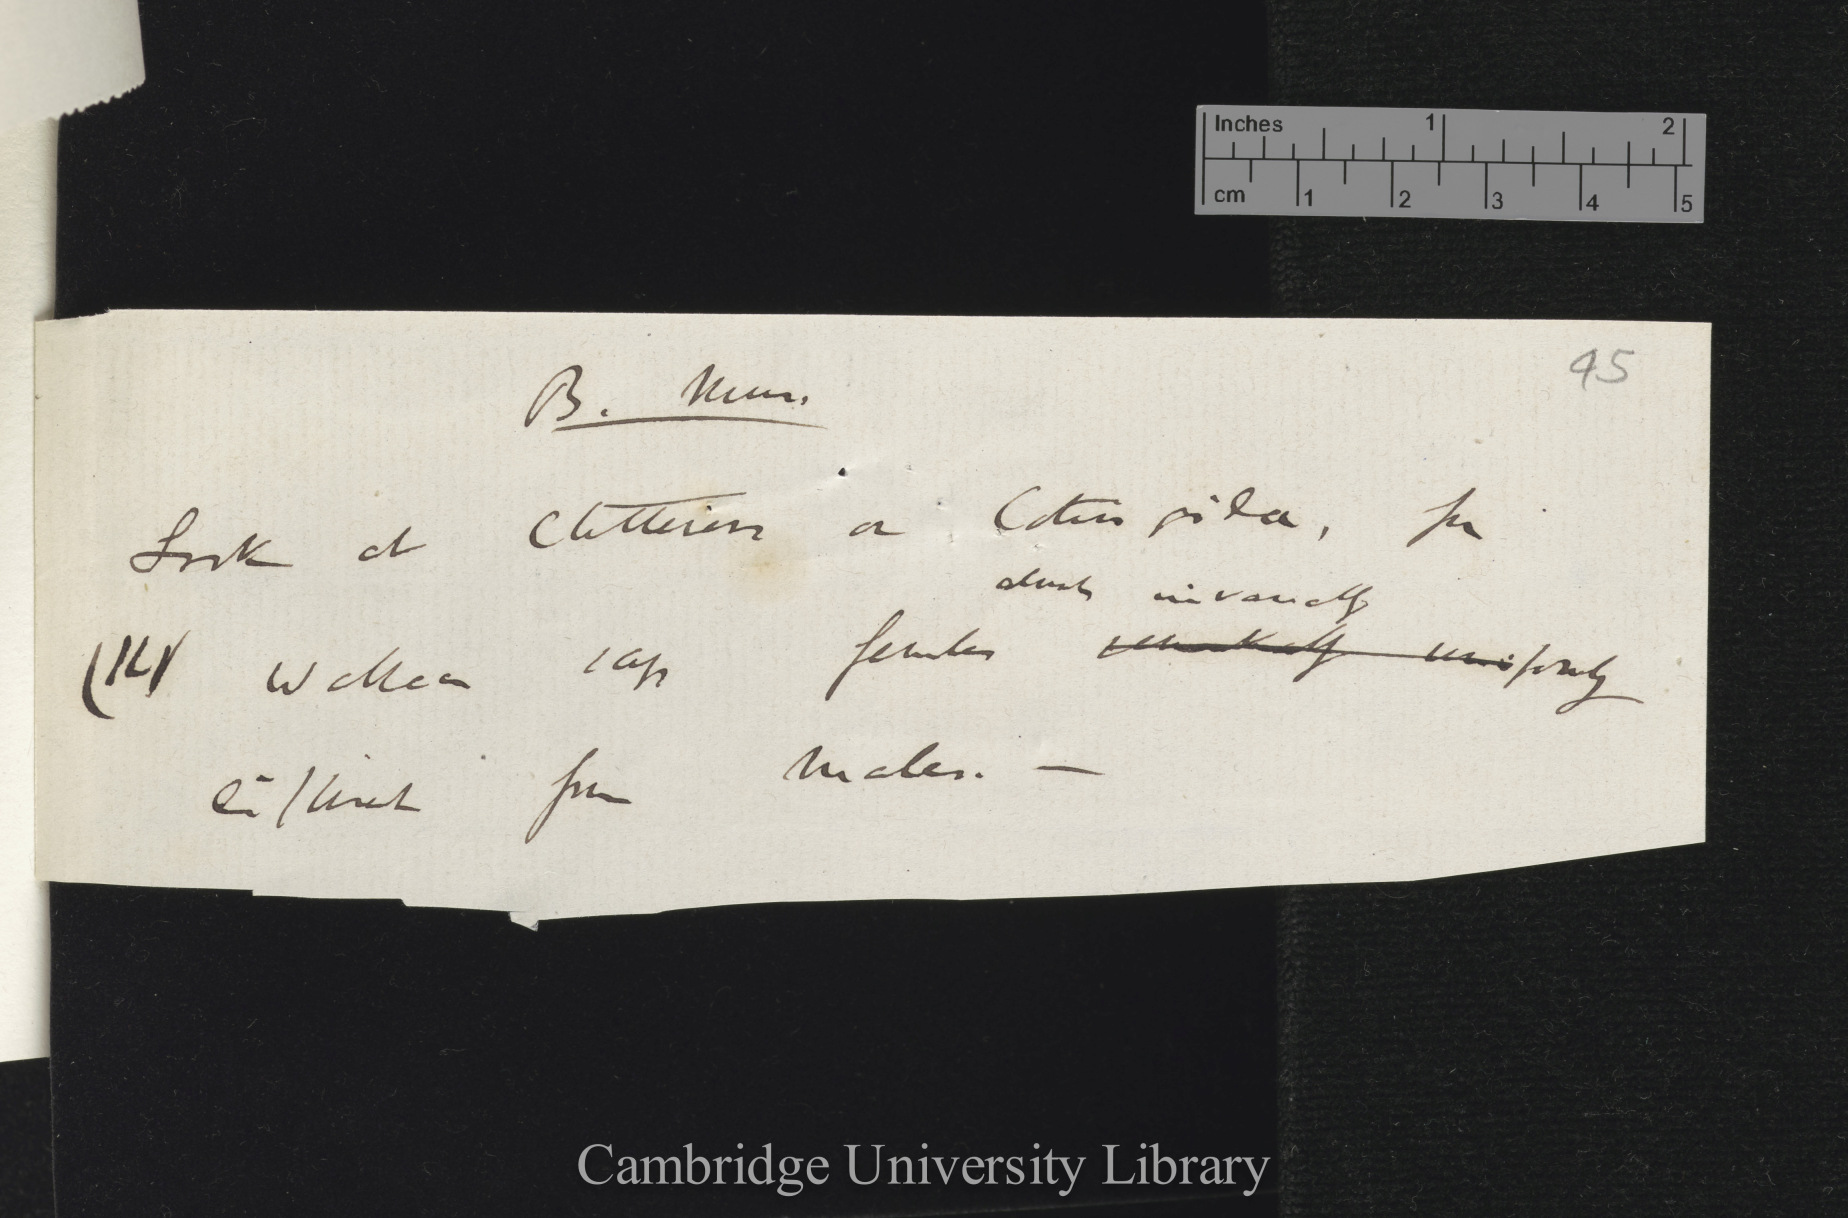 Inches 1 2
cm 1 2 3 4 5
45
B. Mus.
Look at Chatterers or Cotingidæ, for
almost invariably
Wallace says females remarkably uniformly
distinct from males. —
Cambridge University Library